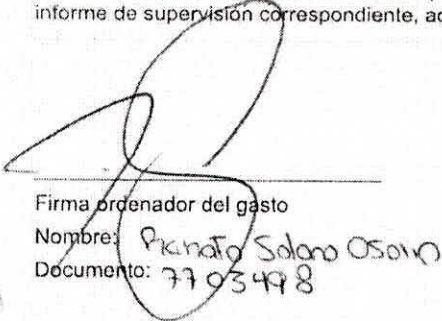 informe de supervisión correspondiente, ad
Firma ordenador del gasto
Nombre: Renato Solano Osorio
Documento: 7703498